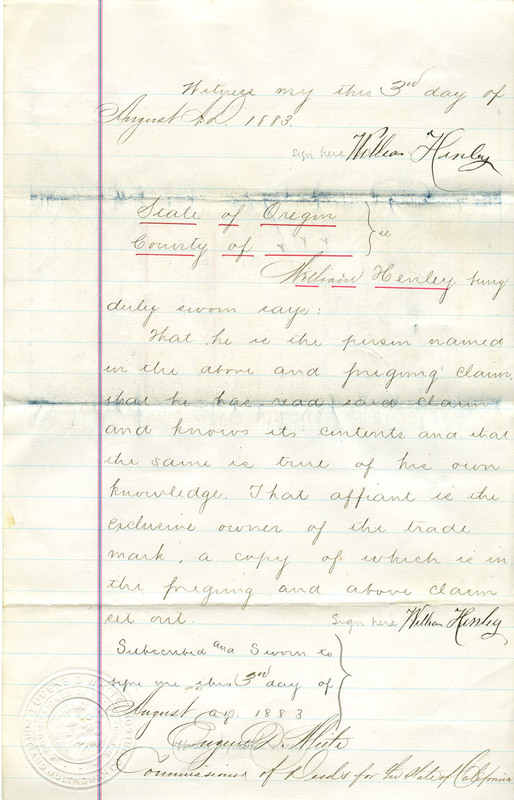 Witness my this 3rd day of
August A.D. 1883.
Sign here William Henley
State of Oregon
County of
ss
William Henley being
duly sworn says:
That he is the person named
in the above and foregoing claim.
that he has read said claim
and knows its contents and that
the same is true of his own
knowledge. That affiant is the
exclusive owner of the trade
mark, a copy of which is in
the foregoing and above claim
set out.
Sign here William Henley
Subscribed and Sworn to
before me this 3rd day of
August A.D. 1883
Eugene D. White
Commissioner of Deeds for the State of California